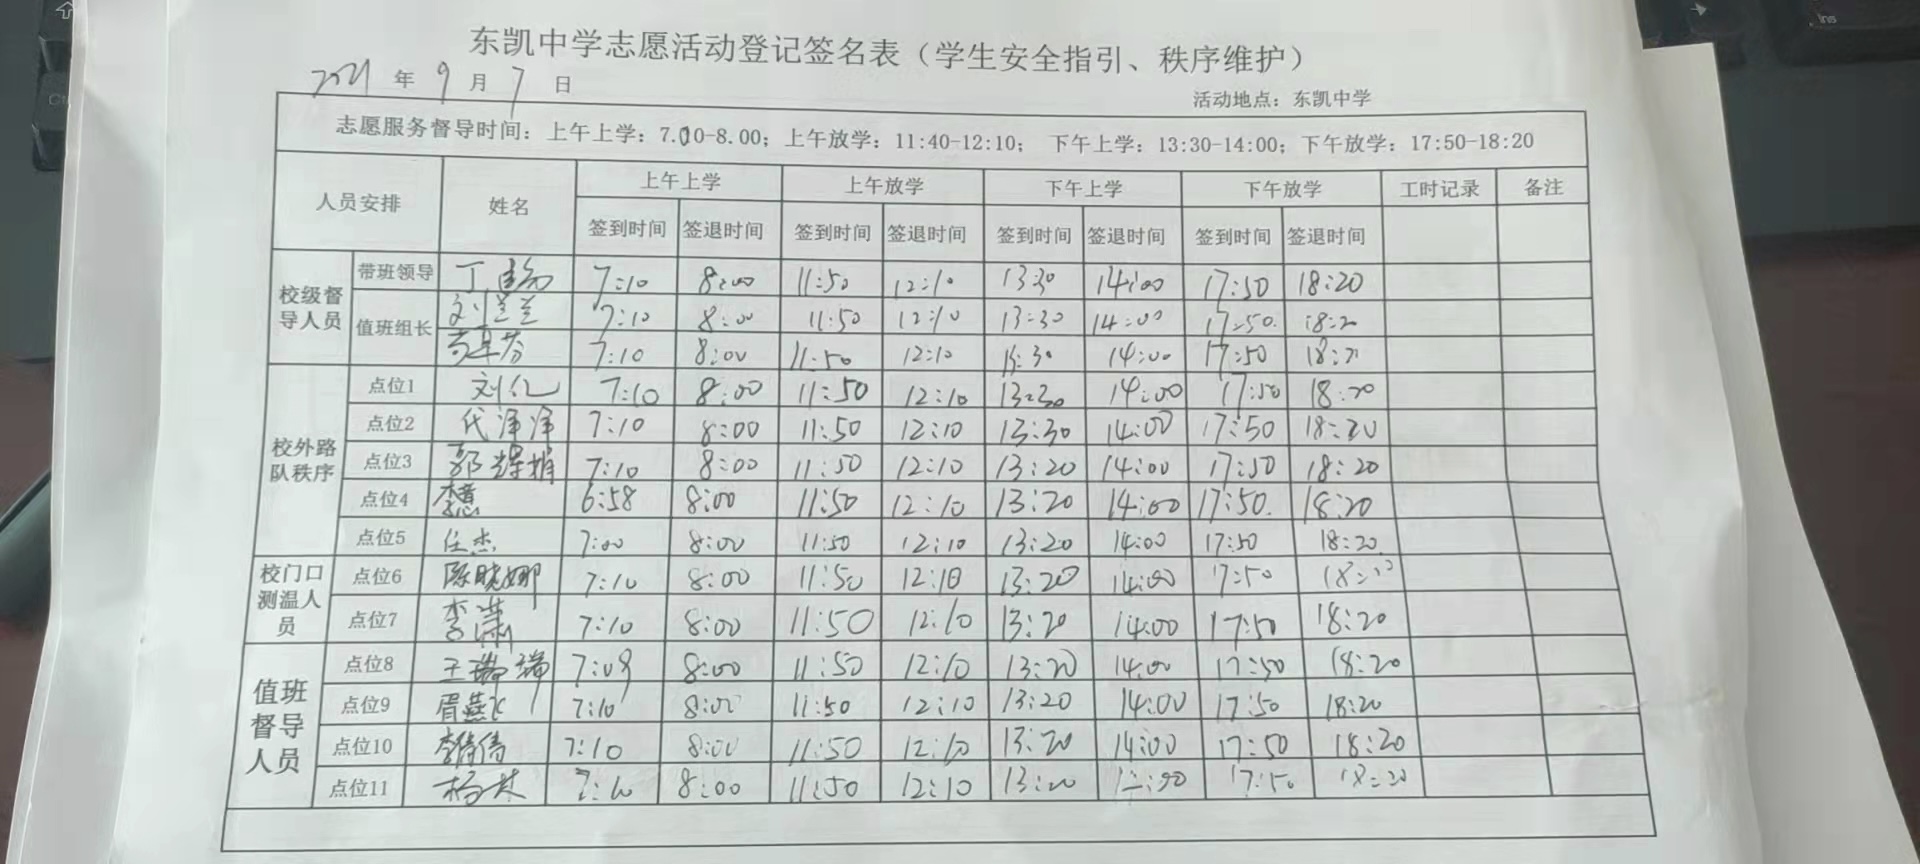 东凯中学志愿活动登记签名表（学生安全指引、秩序维护）
2021年9月7日
活动地点：东凯中学
志愿服务督导时间：上午上学：7.10-8.00；上午放学：11:40-12:10； 下午上学：13:30-14:00；下午放学：17:50-18:20
人员安排 姓名 上午上学 上午放学 下午上学 下午放学 工时记录 备注
签到时间 签退时间 签到时间 签退时间 签到时间 签退时间 签到时间 签退时间
校级督导人员 带班领导 丁 7:10 8:00 11:50 12:10 13:30 14:00 17:50 18:20
值班组长 刘兰兰 7:10 8:00 11:50 12:10 13:30 14:00 17:50 18:20
7:10 8:00 11:50 12:10 13:30 14:00 17:50 18:20
校外路队秩序 点位1 刘仁 7:10 8:00 11:50 12:10 13:30 14:00 17:50 18:20
点位2 代泽泽 7:10 8:00 11:50 12:10 13:30 14:00 17:50 18:20
点位3 郭 7:10 8:00 11:50 12:10 13:20 14:00 17:50 18:20
点位4 李慧 6:58 8:00 11:50 12:10 13:20 14:00 17:50 18:20
点位5 任杰 7:00 8:00 11:50 12:10 13:20 14:00 17:50 18:20
校门口测温人员 点位6 陈晓娜 7:10 8:00 11:50 12:10 13:20 14:00 17:50 18:20
点位7 李潇 7:10 8:00 11:50 12:10 13:20 14:00 17:50 18:20
值班督导人员 点位8 王瑞瑞 7:09 8:00 11:50 12:10 13:20 14:00 17:50 18:20
点位9 胥燕飞 7:10 8:00 11:50 12:10 13:20 14:00 17:50 18:20
点位10 李倩倩 7:10 8:00 11:50 12:10 13:20 14:00 17:50 18:20
点位11 杨 7:10 8:00 11:50 12:10 13:20 17:50 18:20